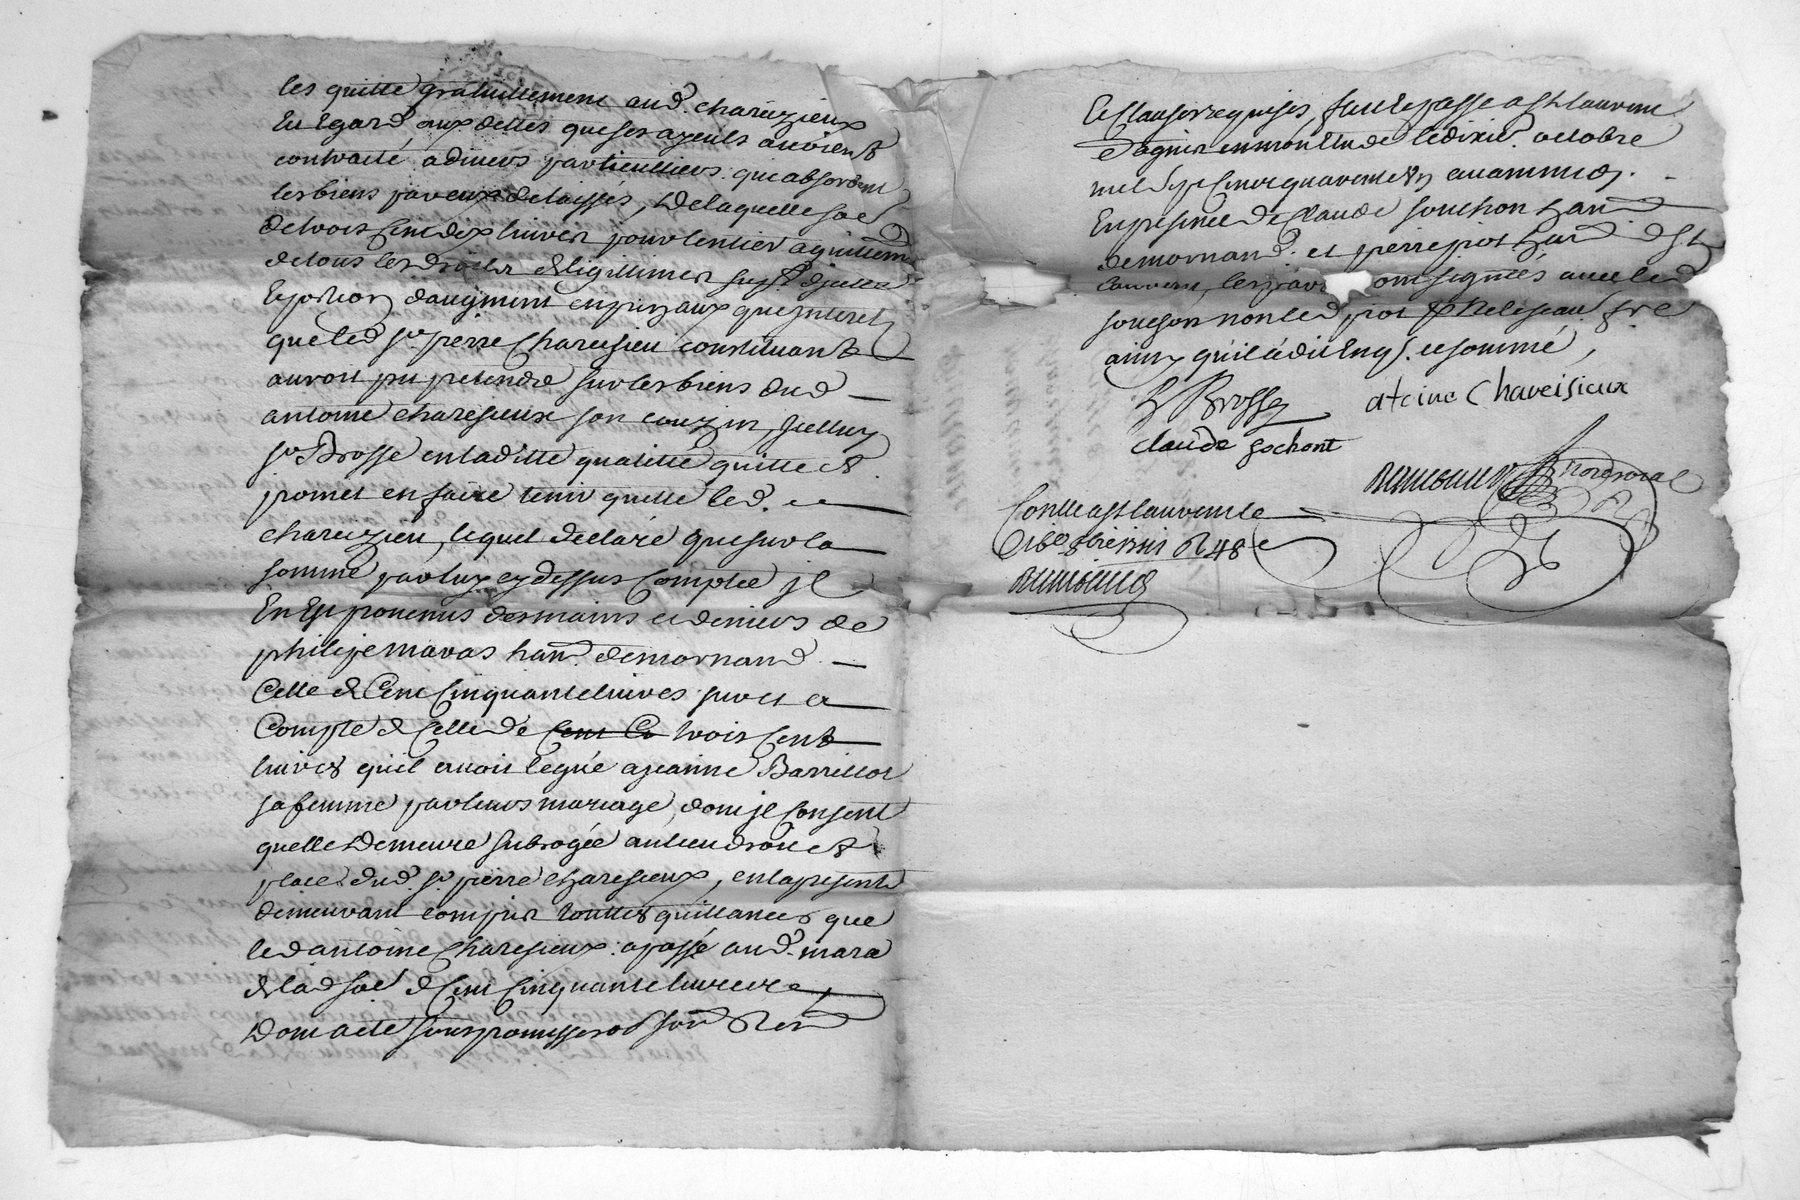 les quitte gratuittement aud. chareizieux
Eu Egard aux dettes que ses ayeuls avoient
contracté a divers particulliers qui absorbent
les biens par eux delaissés, De laquelle soe
de trois Cent dix livres pour l'entier aquittem
de tous les droits & legittimes
Et portion d'augment en prinaux que interets
que led sr. pierre Chareisieu constituant
auroit pu pretendre sur les biens dud
antoine charesieux son couzin, Icelluy
sr. Brosse en laditte qualitté quitte et
promet en faire tenir quitte led.
chareizieu, lequel declare que sur la
somme par luy cy dessus comptée Il
En Est provenus des mains et deniers de
philipe maras hant. de mornand
Celle de Cent Cinquante livres sur et a
Compte de Celle de Cent Ci trois Cent
livres qu'il avoit legué a jeanne Barriccot
sa femme par leurs mariage, dont Il consent
quelle Demeure subrogée au lieu droit et
place dud. sr. pierre charesieux, en la presente
demeurant compris touttes quittances que
led antoine Charesieux a passé aud. mara
de lad soe de Cent Cinquante livres
Dont acte sous promisse
Et Clauses requises, fait Et passé a St laurent
d'agnin en mon Etude le dixie. octobre
mil sept Cent quarente huit avant midi.
En presence de Claude souchon hant
de mornand. et pierre piot hant d St
laurent, les parties ont signées avec led
souchon non led piot
ainsy qu'il a dit Enqs. et sommé,
Brosse
atoine Chaveisieux
claude sochont
Conllé a St laurent le
8bre 1748